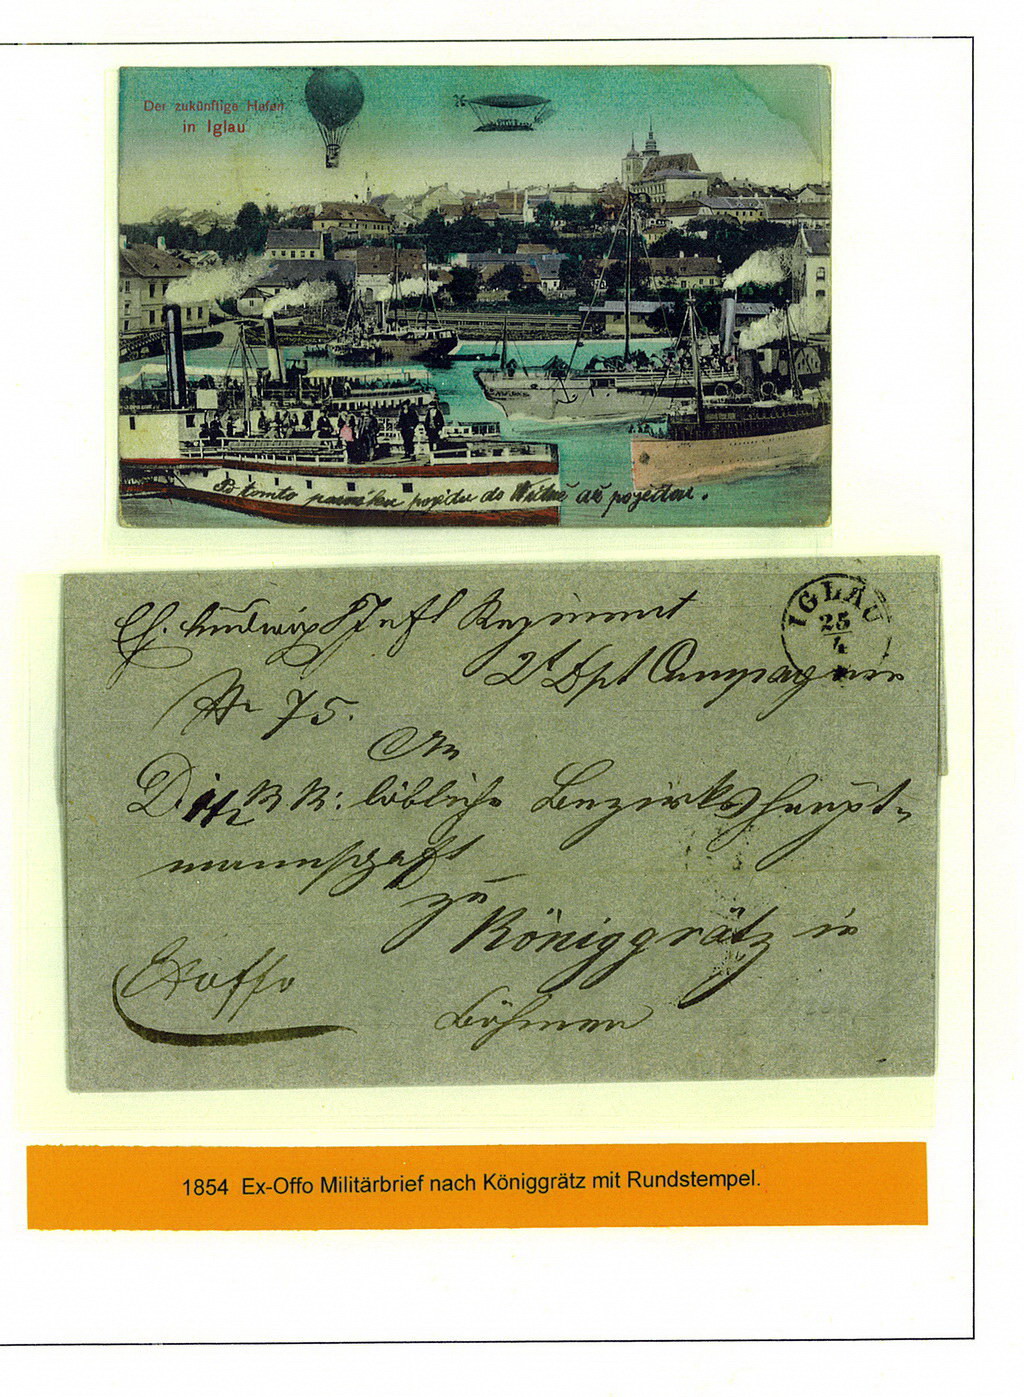 Der zukünftige Hafen
in Iglau
Po tomto parníku pojedu do Vídně až pojedou.
IGLAU
25
4
Ludwig Inft Regiment
2t Dpt Compagnie
Nr 75.
An
Die KK: löbliche Bezirkshaupt-
mannschaft
zu
Königgrätz in
Exoffo
Böhmen
1854 Ex-Offo Militärbrief nach Königgrätz mit Rundstempel.